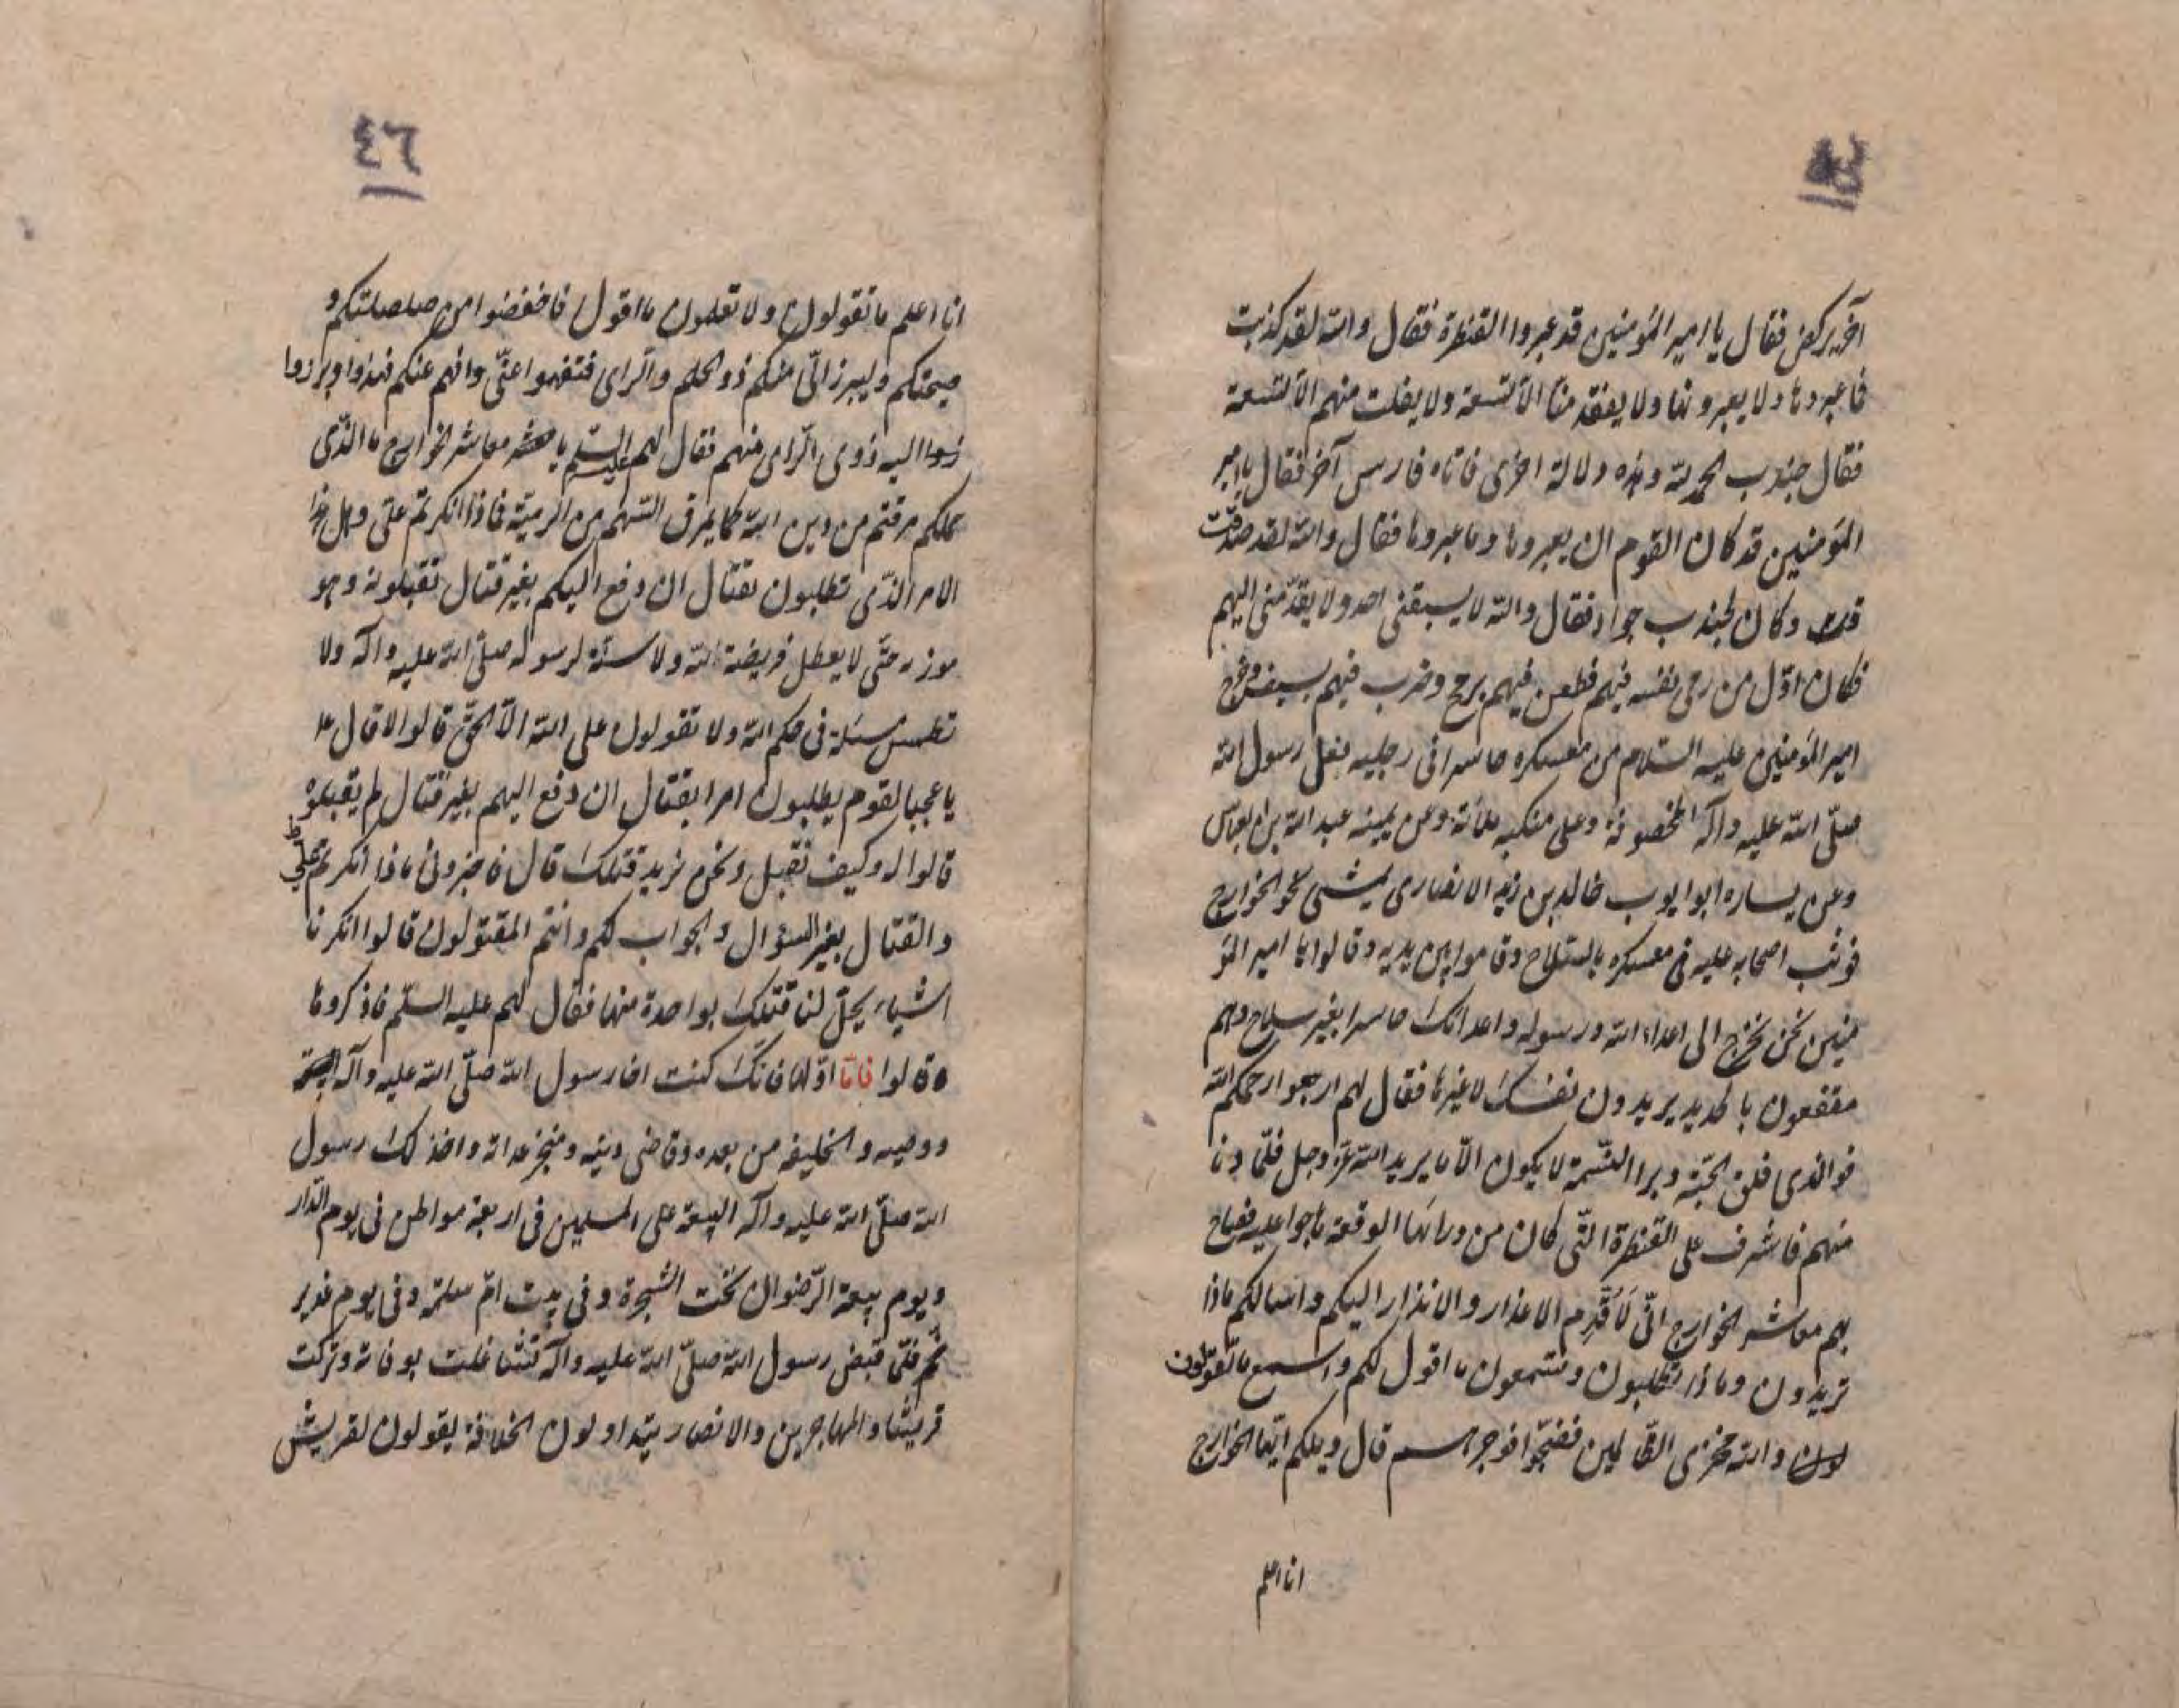 آخر يركض فقال يا امير المؤمنين قد عبروا القنطرة فقال والله لقد كذبت
فاعبروها ولا يعبرونها ولا يفقد منا الا تسعة ولا يفلت منهم الا تسعة
فقال جندب الحمد لله وهذه دلالة اخرى فاتاه فارس آخر فقال يا امير
المؤمنين قد كان القوم ان يعبروها وما عبروها فقال والله لقد صدقت
وكان لجندب جواد فقال والله لا يسبقنى احد ولا يقدمنى اليهم
فكان اول من رمى نفسه فيهم فطعن فيهم برمح وضرب فيهم بسيف وخرج
امير المؤمنين عليه السلام من معسكره حاسرا فى رجليه نعل رسول الله
صلّى الله عليه وآله المخصوفة وعلى منكبيه ملائة وعن يمينه عبد الله بن العباس
وعن يساره ابو ايوب خالد بن زيد الانصارى يمشى نحو الخوارج
فوثب اصحابه عليه فى معسكره بالسلاح وقاموا بين يديه وقالوا يا امير المؤ
منين نحن نخرج الى اعداء الله ورسوله واعدائك حاسرا بغير سلاح وهم
مقنعون بالحديد يريدون نفسك لا غيرها فقال لهم ارجعوا رحمكم الله
فوالذى فلق الحبّة وبرا النسمة لا يكون الّا ما يريد الله عزّ وجل فلمّا دنا
منهم فاشرف على القنطرة التّى كان من ورائها الوقعة هاجوا عليه فصاح
بهم معاشر الخوارج انّى لَاُقَدِّم الاعذار والانذار اليكم واسالكم ماذا
تريدون وماذا تطلبون وتستمعون ما اقول لكم واسمع ما تقولون
والله مخزى الظالمين قال ويلكم ايّها الخوارج
انا اعلم
٤٦
انا اعلم ما تقولون ولا تعلمون ما اقول فاخفضوا من صلصلتكم و
صيحتكم وليبرز الىّ منكم ذو الحلم والراى فتفهموا عنّى وافهم عنكم فهذوا وبرزوا
اليه ذوى الراى منهم فقال لهم عليه السلم يا معاشر الخوارج ما الذّى
حملكم مرقتم من دين الله كما يمرق السّهم من الرميّة فاذا انكرتم علىّ وهل هذا
الامر الذّى تطلبون بقتال ان دفع اليكم بغير قتال تقبلونه وهو
موزر حتّى لا يعطل فريضة الله ولا سنّة لرسوله صلّى الله عليه وآله ولا
تطمس مسئلة فى حكم الله ولا تقولون على الله الّا الحقّ قالوا لا قال ع
يا عجبا لقوم يطلبون امرا بقتال ان دفع اليهم بغير قتال لم يقبلوه
قالوا له وكيف نقبل ونحن نريد قتلك قال فاخبرونى ماذا انكرتم علىّ
والقتال بغير السؤال والجواب لكم وانتم المقتولون قالوا انكرنا
اشياء يحلّ لنا قتلك بواحدة منها فقال لهم عليه السلّم فاذكروها
قالوا فامّا اوّلها فانّك كنت اخا رسول الله صلّى الله عليه وآله
ووصيه والخليفه من بعده وقاضى دينه ومنجز عداته واخذ لك رسول
الله صلّى الله عليه وآله البيعة على المسلمين فى اربعة مواطن فى يوم الدّار
ويوم بيعة الرّضوان تحت الشجرة وفى بيت امّ سلمة وفى يوم غدير
خم فلمّا قبض رسول الله صلّى الله عليه وآله تشاغلت بوفاته وتركت
قريشا والمهاجرين والانصار يتداولون الخلافة يقولون لقريش